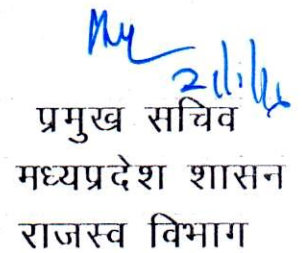 प्रमुख सचिव
मध्यप्रदेश शासन
राजस्व विभाग